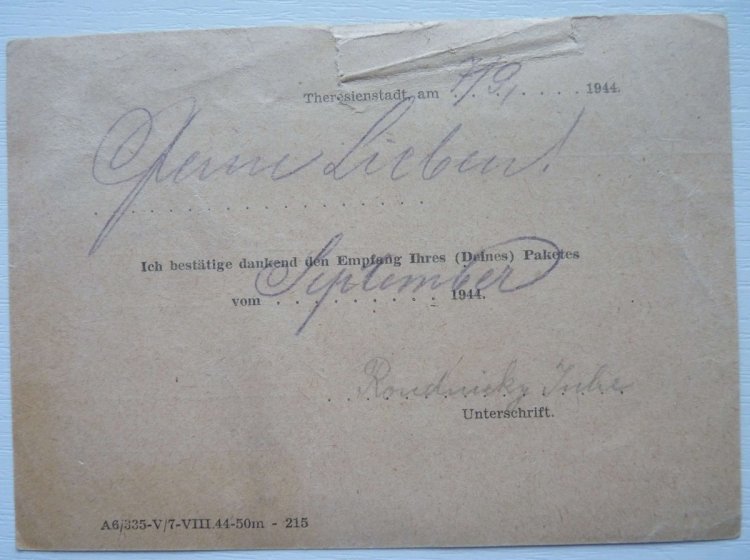 Theresienstadt, am 7/9. 1944.
Meine Lieben!
Ich bestätige dankend den Empfang Ihres (Deines) Paketes
vom September 1944.
Unterschrift.
A6/335-V/7-VIII.44-50m - 215